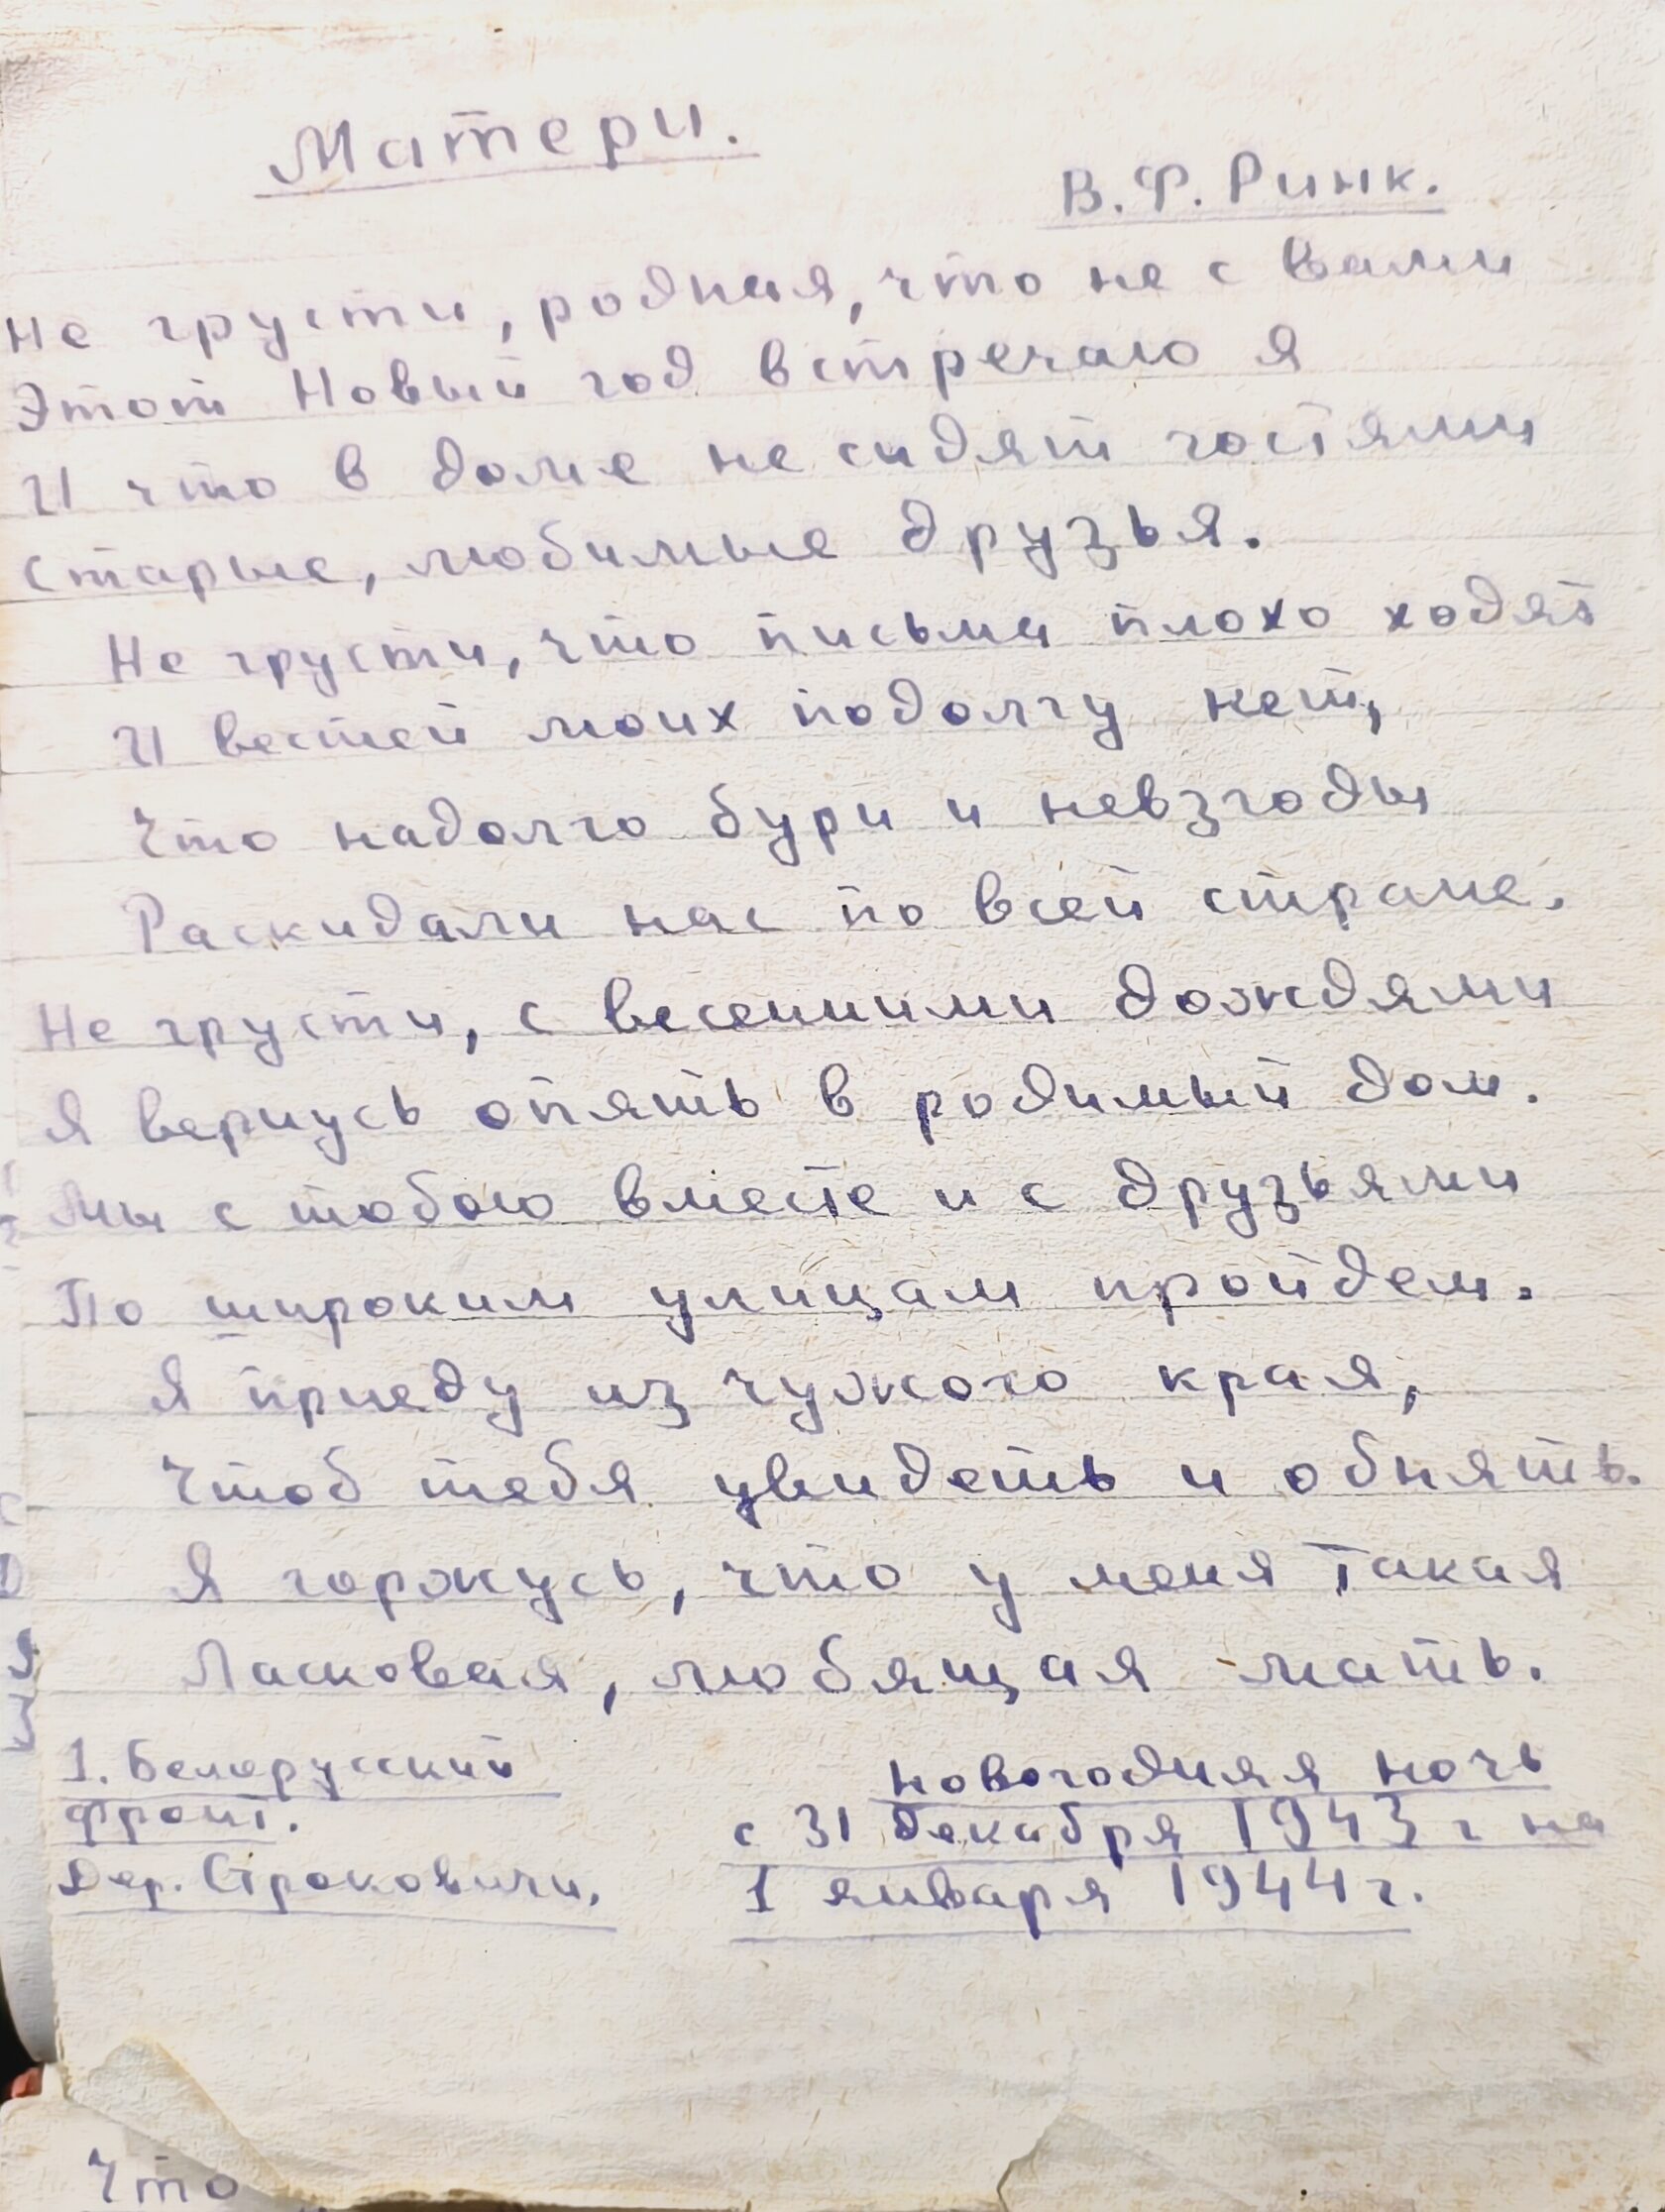 Матери.
В.Ф. Ринк.
Не грусти, родная, что не с Вами
Этот Новый год встречаю я
И что в доме не сидят гостями
Старые, любимые друзья.
Не грусти, что письма плохо ходят
И вестей моих подолгу нет,
Что надолго бури и невзгоды
Раскидали нас по всей стране.
Не грусти, с весенними дождями
Я вернусь опять в родимый дом.
Мы с тобою вместе и с друзьями
По широким улицам пройдем.
Я приеду из чужого края,
Чтоб тебя увидеть и обнять.
Я горжусь, что у меня такая
Ласковая, любящая мать.
1. Белорусский
фронт.
Дер. Строковичи.
Новогодняя ночь
с 31 декабря 1943 г на
1 января 1944 г.
Что